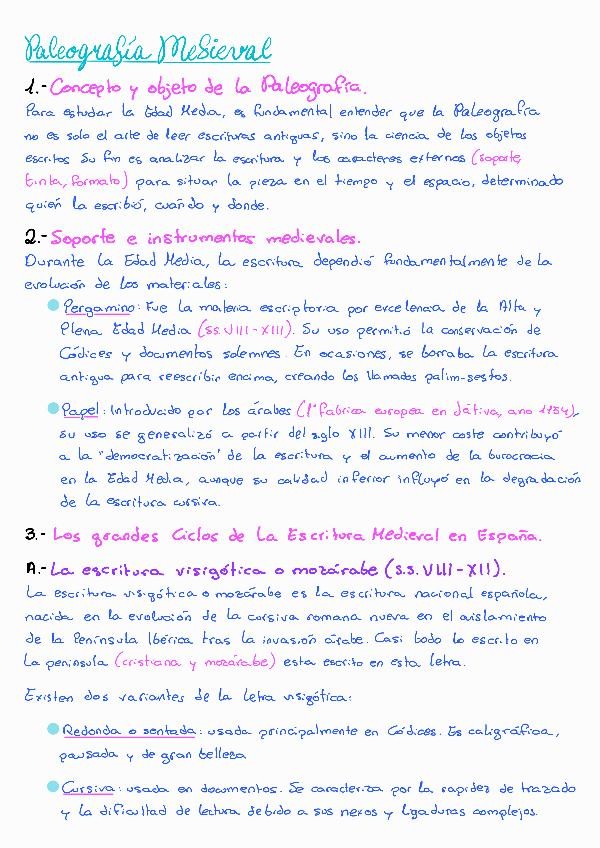 Paleografía Medieval
1.- Concepto y objeto de la Paleografía.
Para estudiar la Edad Media, es fundamental entender que la Paleografía
no es solo el arte de leer escrituras antiguas, sino la ciencia de los objetos
escritos Su fin es analizar la escritura y los caracteres externos (soporte,
tinta, formato) para situar la pieza en el tiempo y el espacio, determinado
quién la escribió, cuándo y donde.
2.- Soporte e instrumentos medievales.
Durante la Edad Media, la escritura dependió fundamentalmente de la
evolución de los materiales:
Pergamino: Fue la materia escriptoria por excelencia de la Alta y
Plena Edad Media (ss. VIII - XIII). Su uso permitió la conservación de
Códices y documentos solemnes. En ocasiones, se borraba la escritura
antigua para reescribir encima, creando los llamados palim-sestos.
Papel: Introducido por los árabes (1ª fabrica europea en Játiva, ano 1154),
su uso se generalizó a partir del siglo XIII. Su menor coste contribuyó
a la "democratización" de la escritura y el aumento de la burocracia
en la Edad Media, aunque su calidad inferior influyó en la degradación
de la escritura cursiva.
3.- Los grandes Ciclos de La Escritura Medieval en España.
A.- La escritura visigótica o mozárabe (s.s. VIII - XII).
La escritura visigótica o mozárabe es la escritura nacional española,
nacida en la evolución de la cursiva romana nueva en el aislamiento
de la Península Ibérica tras la invasión árabe. Casi todo lo escrito en
la península (cristiana y mozárabe) esta escrito en esta letra.
Existen dos variantes de la letra visigótica:
Redonda o sentada: usada principalmente en Códices. Es caligráfica,
pausada y de gran belleza
Cursiva: usada en documentos. Se caracteriza por la rapidez de trazado
y la dificultad de lectura debido a sus nexos y ligaduras complejos.